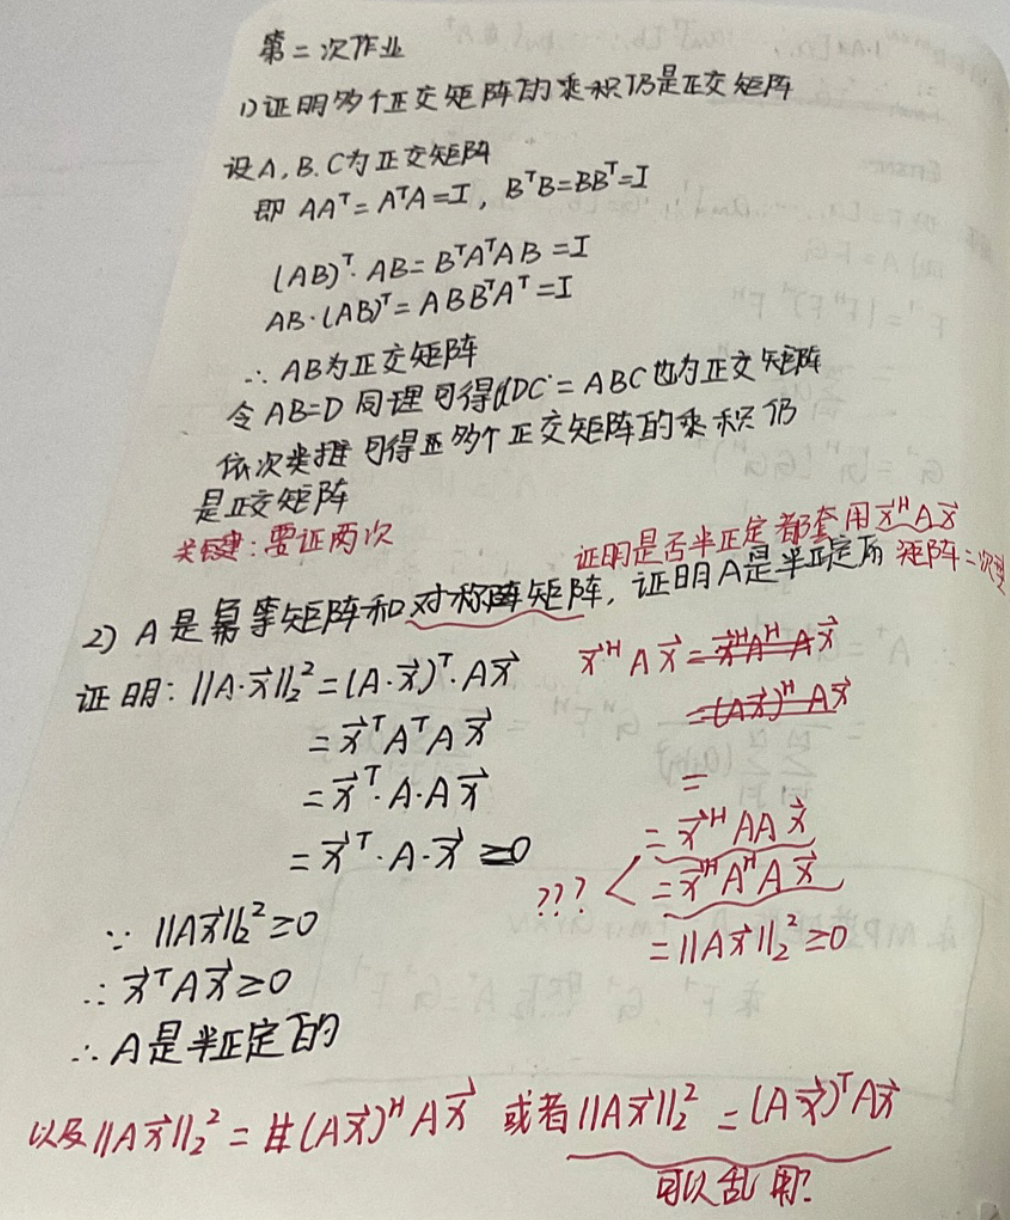 第二次作业
1)证明多个正交矩阵的乘积仍是正交矩阵
设A,B.C为正交矩阵
即 AAᵀ=AᵀA=I, BᵀB=BBᵀ=I
(AB)ᵀ·AB=BᵀAᵀAB=I
AB·(AB)ᵀ=ABBᵀAᵀ=I
∴AB为正交矩阵
令AB=D 同理可得DC=ABC也为正交矩阵
依次类推可得多个正交矩阵的乘积仍
是正交矩阵
关键:要证两次
证明是否半正定都套用x⃗ᴴAx⃗
矩阵二次型
2) A是幂等矩阵和对称矩阵,证明A是半正定
证明:||A·x⃗||₂²=(A·x⃗)ᵀ·Ax⃗
=x⃗ᵀAᵀAx⃗
=x⃗ᵀ·A·Ax⃗
=x⃗ᵀ·A·x⃗≥0
∵ ||Ax⃗||₂²≥0
∴x⃗ᵀAx⃗≥0
∴A是半正定的
x⃗ᴴAx⃗=x⃗ᴴAᴴAx⃗
=(Ax⃗)ᴴAx⃗
=
=x⃗ᴴAAx⃗
??? =x⃗ᴴAᴴAx⃗
=||Ax⃗||₂²≥0
以及||Ax⃗||₂²=(Ax⃗)ᴴAx⃗ 或者||Ax⃗||₂²=(Ax⃗)ᵀAx⃗
可以乱用.